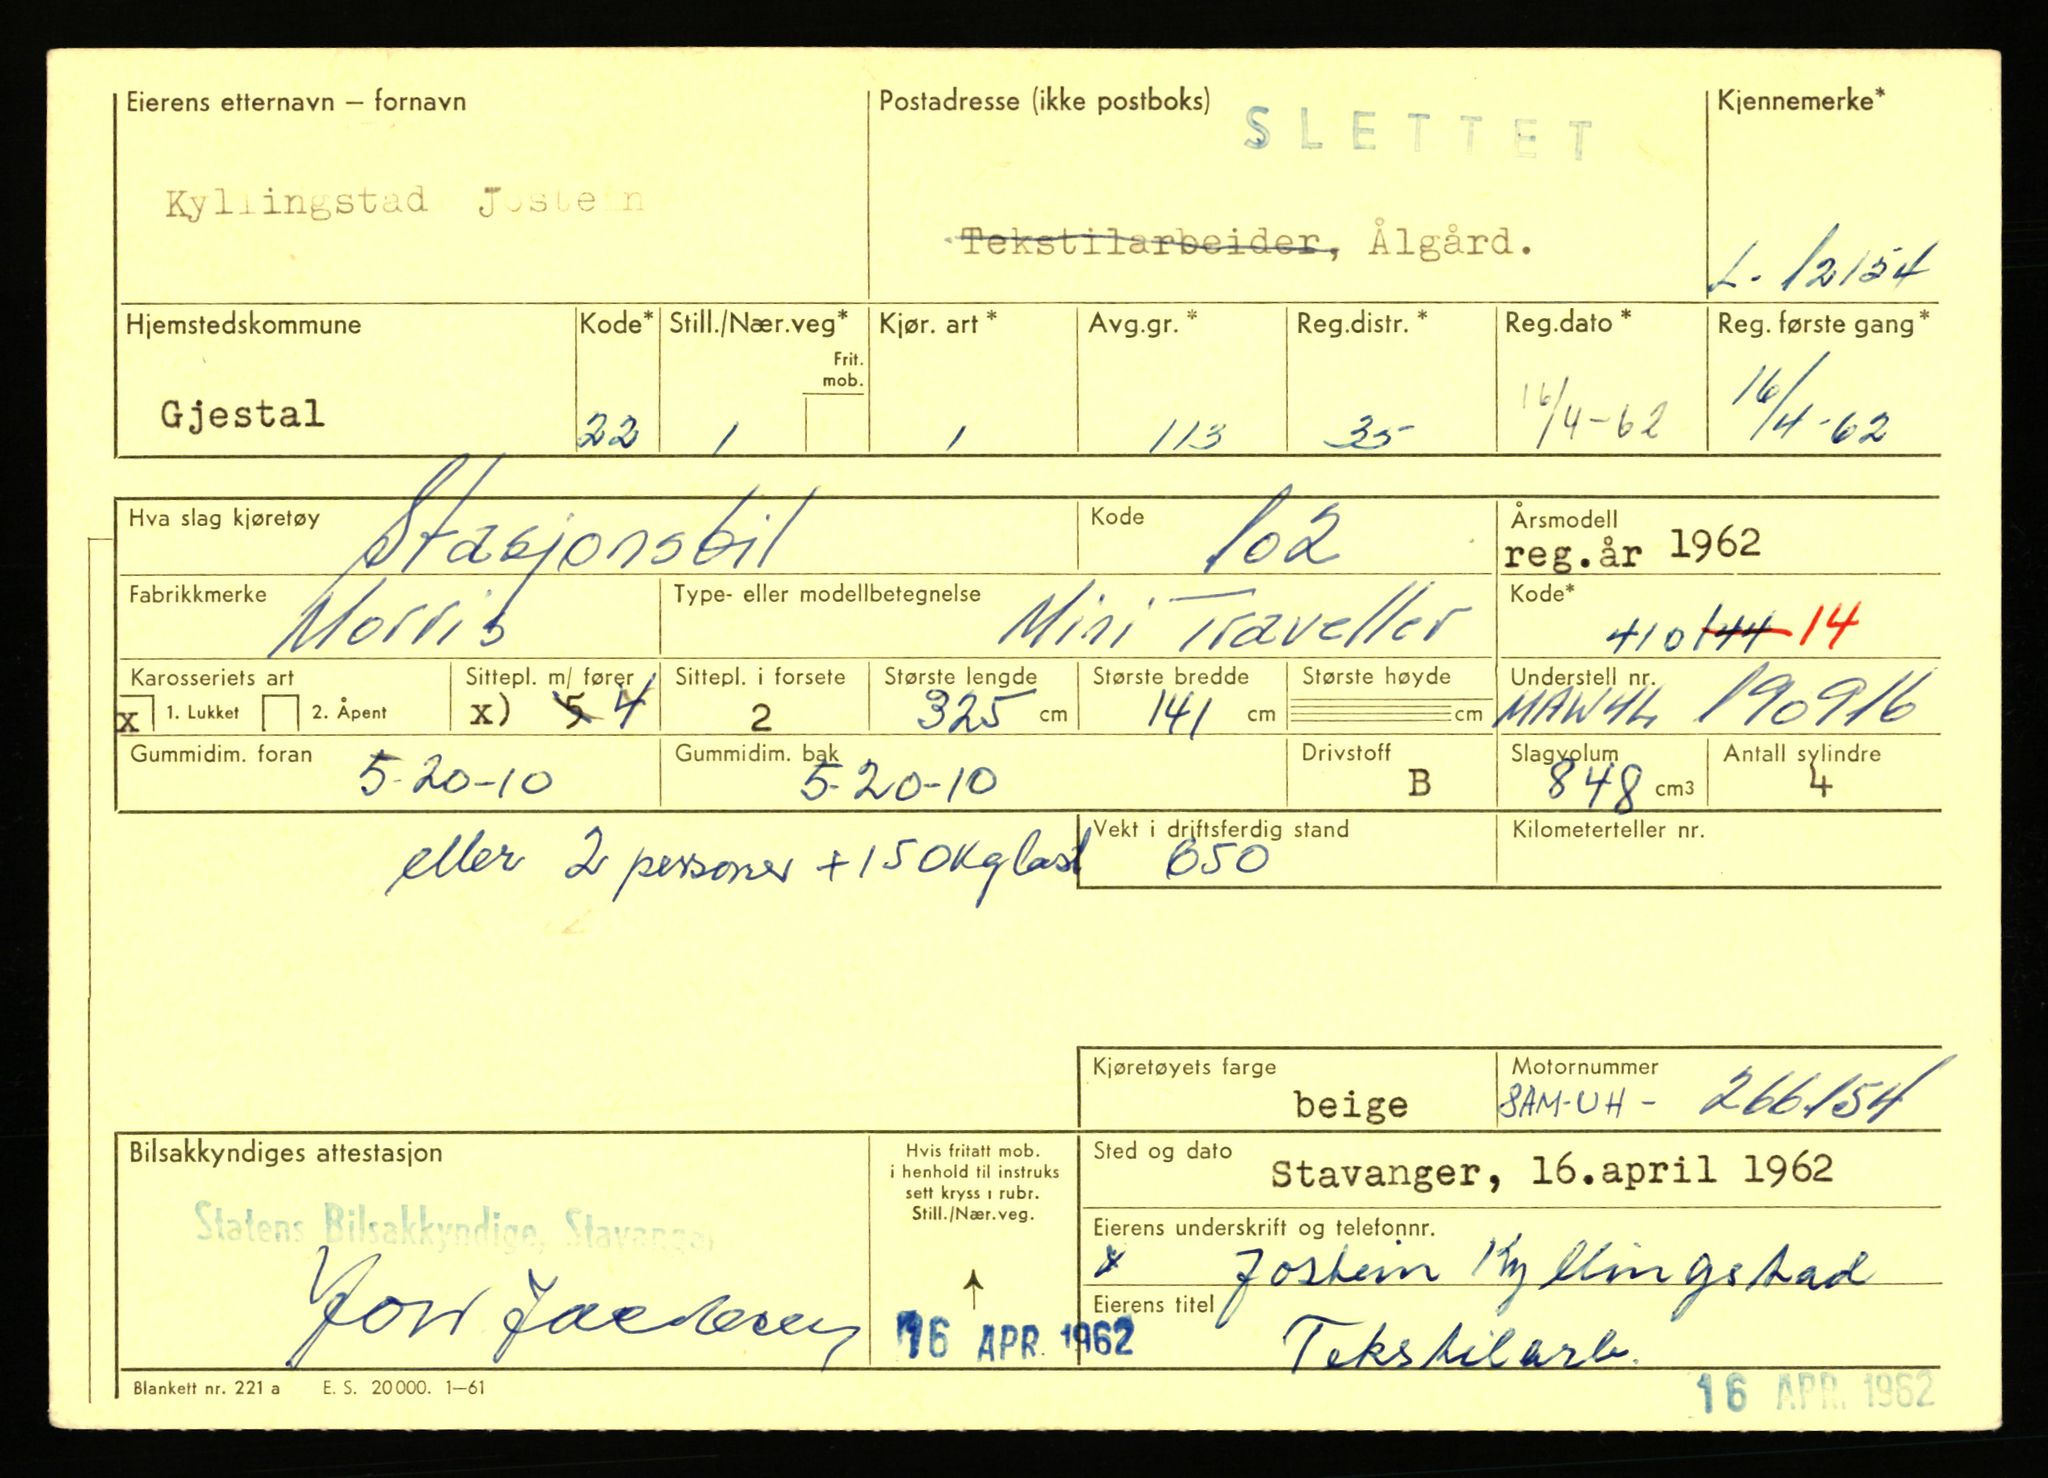 Eierens etternavn — fornavn
Kyllingstad Jostein
Postadresse (ikke postboks)
SLETTET
Tekstilarbeider, Ålgård.
Kjennemerke*
L-12154
Hjemstedskommune
Gjestal
Kode*
22
Still./Nær.veg*
Frit.
mob.
1
Kjør. art *
1
Avg.gr. *
113
Reg.distr. *
35
Reg.dato *
16/4-62
Reg. første gang*
16/4-62
Hva slag kjøretøy
Stasjonsbil
Kode
102
Årsmodell
reg.år 1962
Fabrikkmerke
Morris
Type- eller modellbetegnelse
Mini Traveller
Kode*
410144 14
Karosseriets art
x 1. Lukket 2. Åpent
Sittepl. m/ fører
x) 5 4
Sittepl. i forsete
2
Største lengde
325 cm
Største bredde
141 cm
Største høyde
cm
Understell nr.
MAW4L 190916
Gummidim. foran
5-20-10
Gummidim. bak
5-20-10
Drivstoff
B
Slagvolum
848 cm3
Antall sylindre
4
eller 2 personer + 150 kg last
Vekt i driftsferdig stand
650
Kilometerteller nr.
Kjøretøyets farge
beige
Motornummer
8AM-UH- 266154
Bilsakkyndiges attestasjon
Statens Bilsakkyndige, Stavanger
Hvis fritatt mob.
i henhold til instruks
sett kryss i rubr.
Still./Nær.veg.
16 APR. 1962
Sted og dato
Stavanger, 16.april 1962
Eierens underskrift og telefonnr.
x Jostein Kyllingstad
Eierens titel
Tekstilarb.
Blankett nr. 221 a E. S. 20000. 1—61
16 APR. 1962